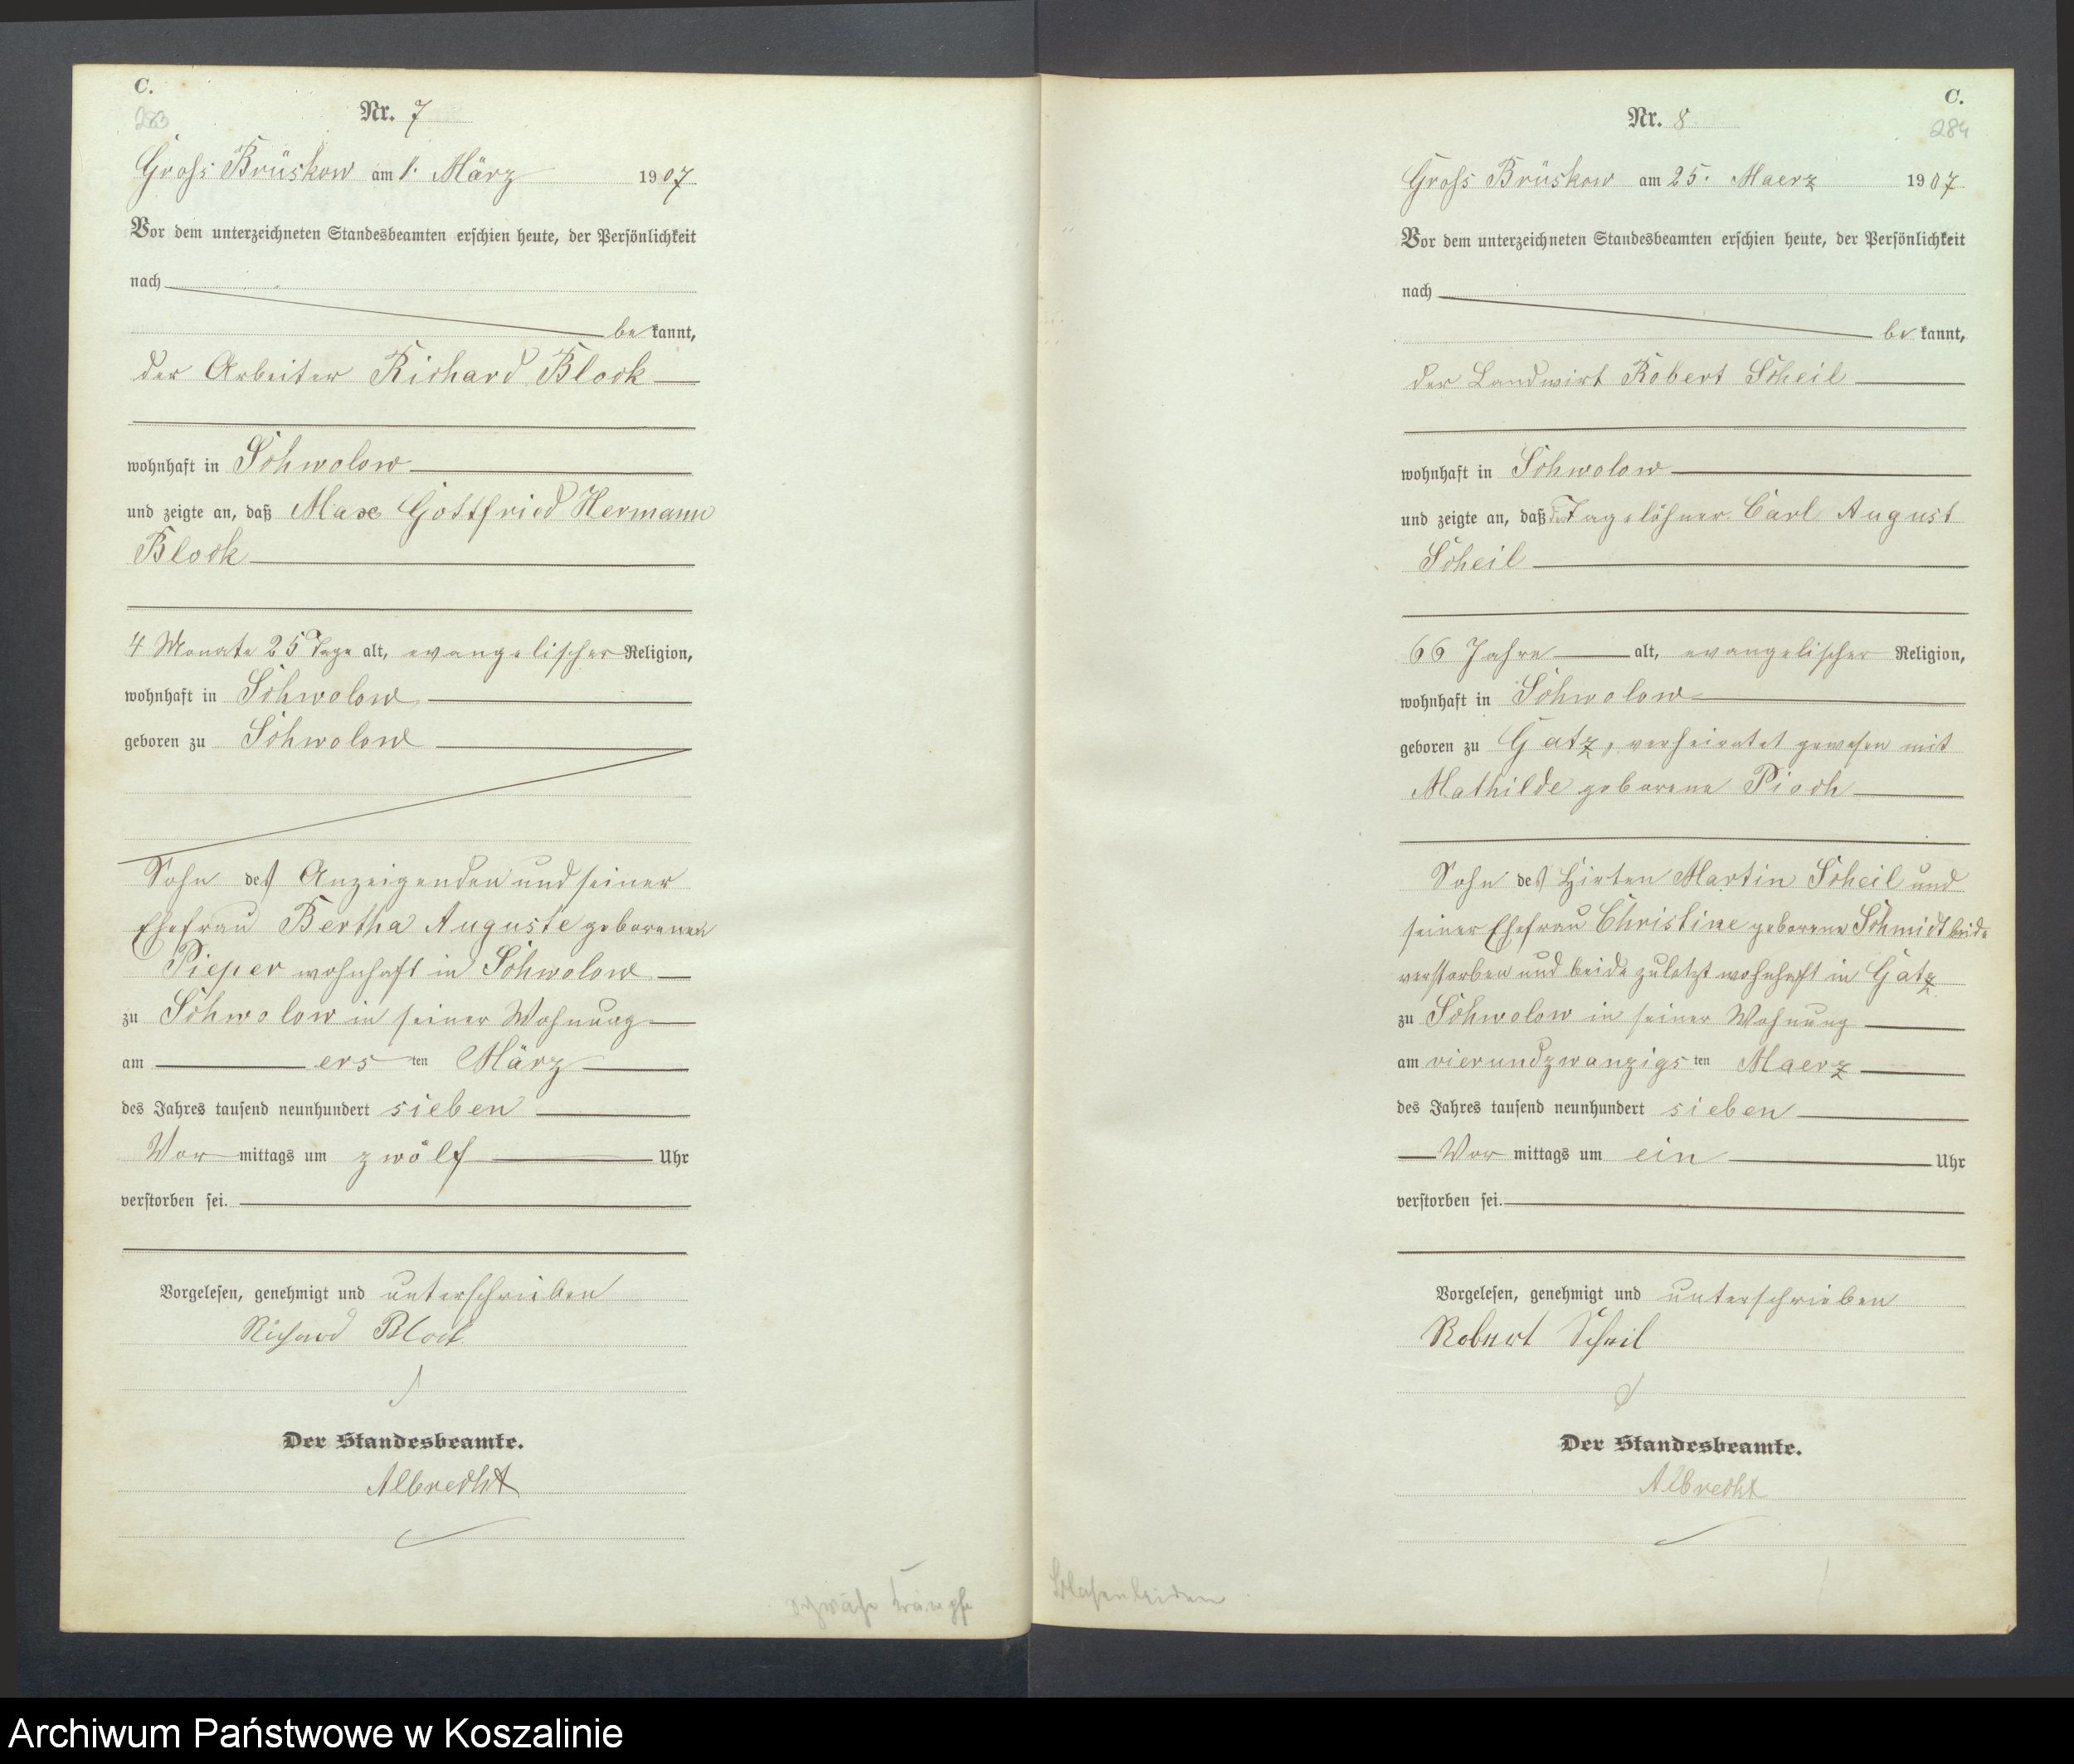 C.
283
Nr. 7
Gross Brüskow am 1. März 1907
Vor dem unterzeichneten Standesbeamten erschien heute, der Persönlichkeit
nach
be kannt,
der Arbeiter Richard Block
wohnhaft in Schwolow
und zeigte an, daß Max Gottfried Hermann
Block
4 Monate 25 Tage alt, evangelischer Religion,
wohnhaft in Schwolow
geboren zu Schwolow
Sohn des Anzeigenden und seiner
Ehefrau Bertha Auguste geborenen
Pieper wohnhaft in Schwolow
zu Schwolow in seiner Wohnung
am ersten März
des Jahres tausend neunhundert sieben
Vor mittags um zwölf Uhr
verstorben sei.
Vorgelesen, genehmigt und unterschrieben
Richard Block
Der Standesbeamte.
Albrecht
C.
284
Nr. 8
Gross Brüskow am 25. Maerz 1907
Vor dem unterzeichneten Standesbeamten erschien heute, der Persönlichkeit
nach
be kannt,
der Landwirt Robert Scheil
wohnhaft in Schwolow
und zeigte an, daß der Tagelöhner Carl August
Scheil
66 Jahre alt, evangelischer Religion,
wohnhaft in Schwolow
geboren zu Gatz, verheiratet gewesen mit
Mathilde geborene Pioch
Sohn des Hirten Martin Scheil und
seiner Ehefrau Christine geborene Schmidt beide
verstorben und beide zuletzt wohnhaft in Gatz
zu Schwolow in seiner Wohnung
am vierundzwanzigsten Maerz
des Jahres tausend neunhundert sieben
Vor mittags um ein Uhr
verstorben sei.
Vorgelesen, genehmigt und unterschrieben
Robert Scheil
Der Standesbeamte.
Albrecht
Blasenleiden
Archiwum Państwowe w Koszalinie